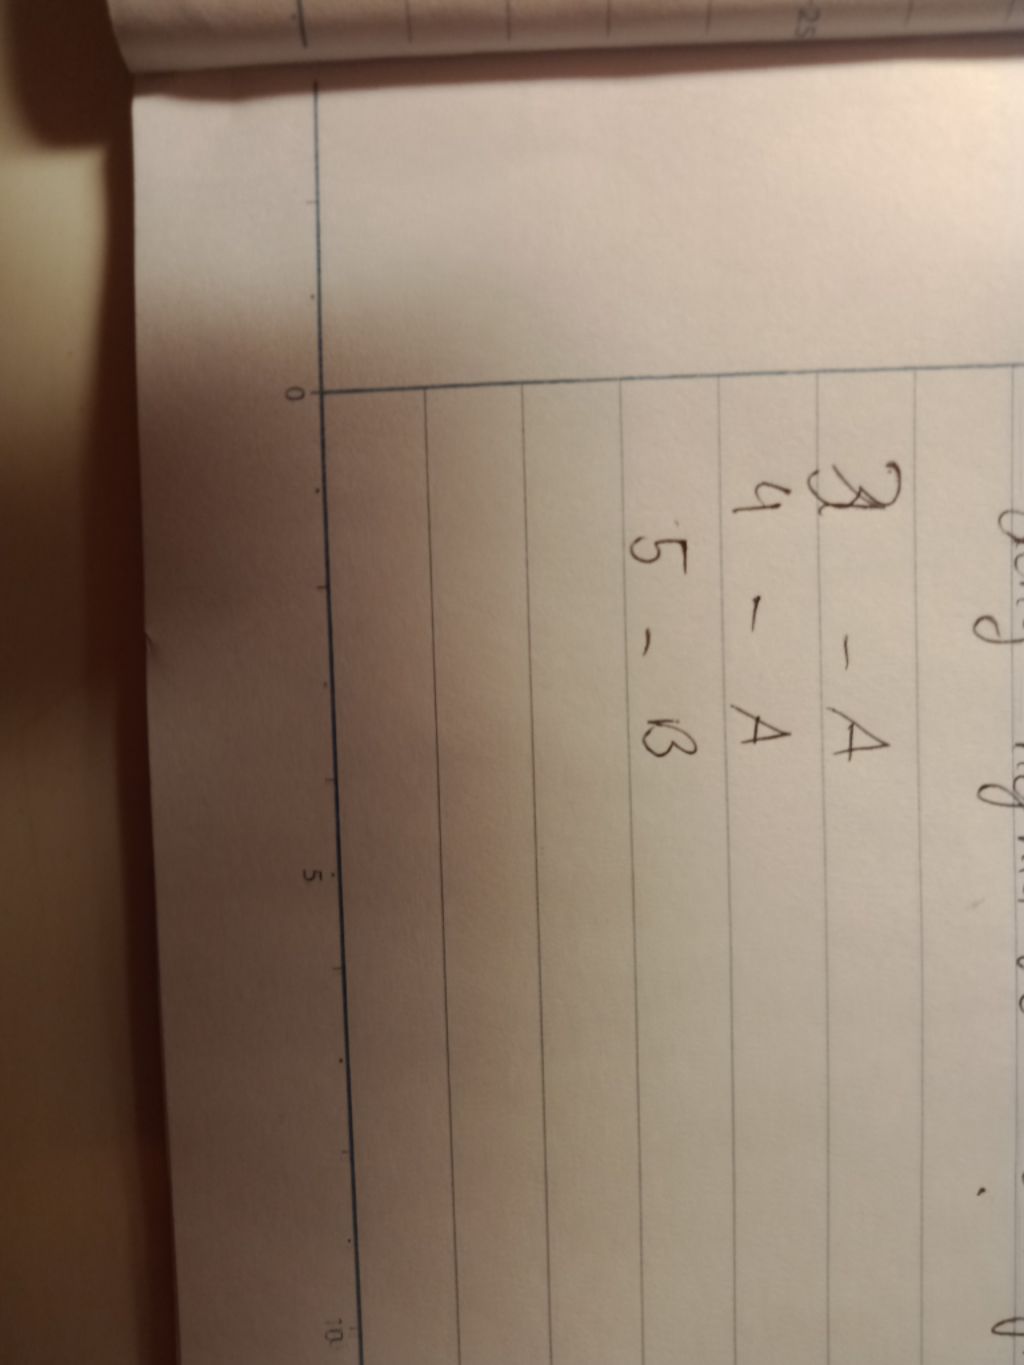 3 - A
4 - A
5 - B
0
5
10
25